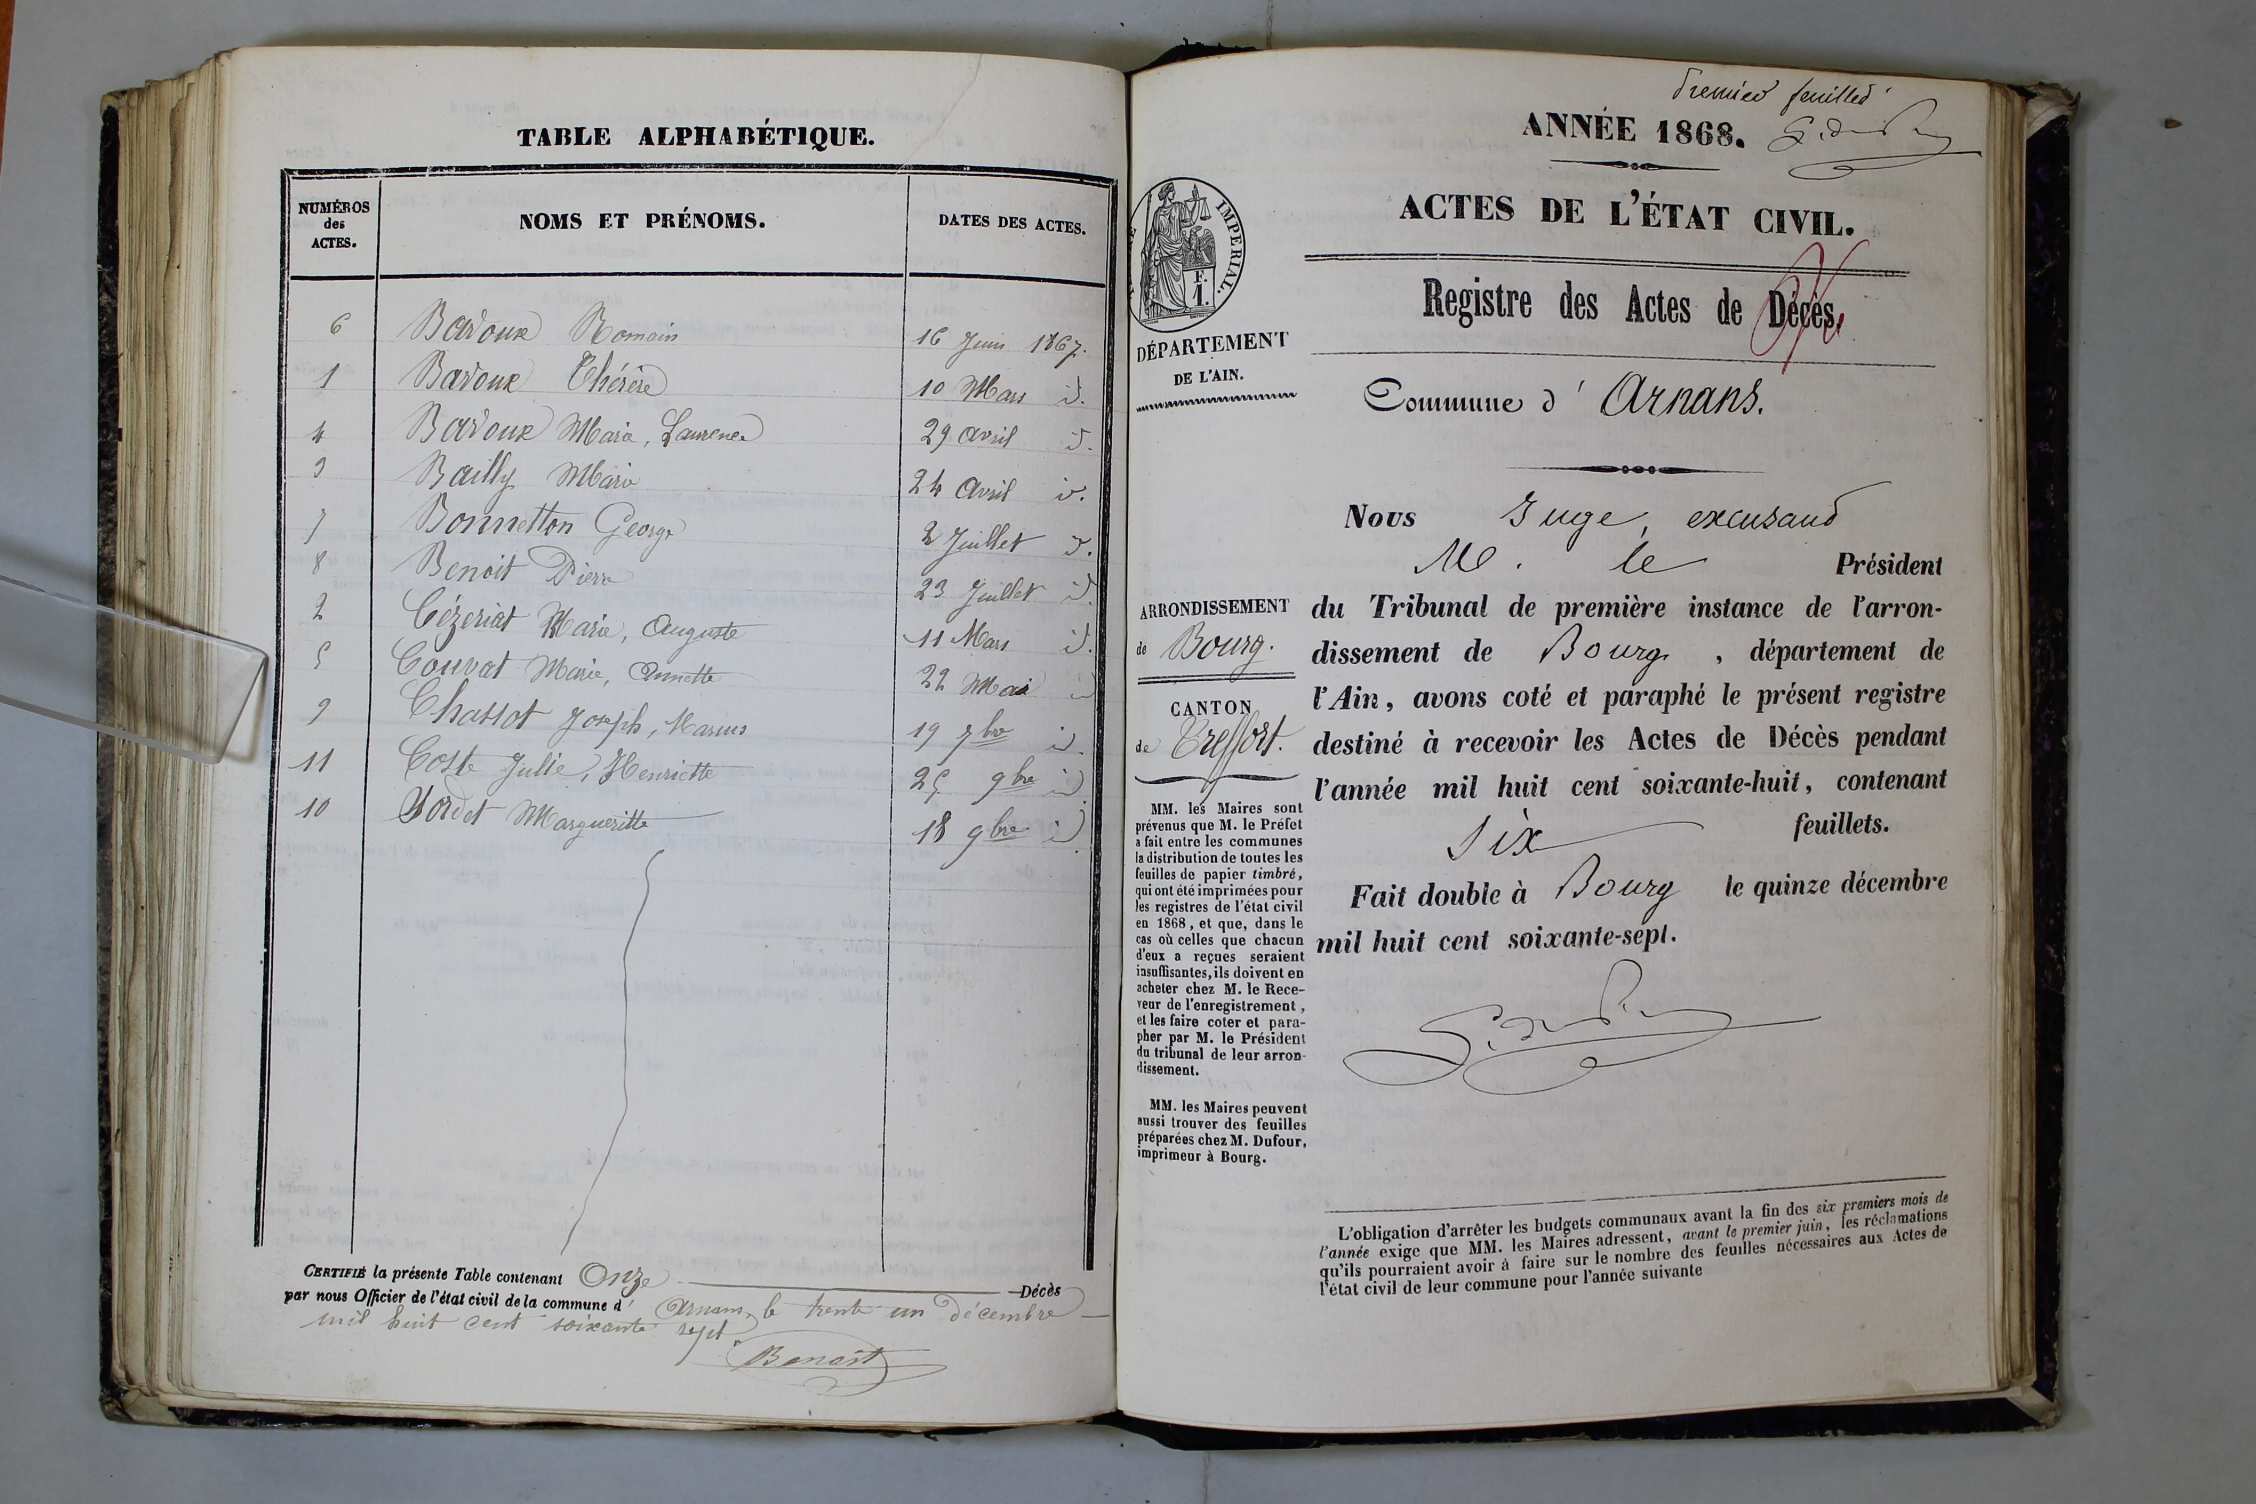 TABLE ALPHABÉTIQUE.
NUMÉROS des ACTES.
NOMS ET PRÉNOMS.
DATES DES ACTES.
6 Baroux Romain 16 Juin 1867.
1 Baroux Thérèse 10 Mars id.
4 Baroux Marie, Laurence 29 avril id.
3 Bailly Marie 24 avril id.
7 Bonnetton George 2 Juillet id.
8 Benoit Pierre 23 Juillet id.
2 Cézeriat Marie, Auguste 11 Mars id.
5 Couvat Marie, Annette 22 Mai id
9 Chassot Joseph, Marius 19 7bre id.
11 Coste Julie, Henriette 25 9bre id.
10 Margueritte 18 9bre id.
CERTIFIÉ la présente Table contenant Onze Décès
par nous Officier de l'état civil de la commune d' Arnans, le trente un décembre
mil huit cent soixante sept.
Benoit
Premier feuillet
ANNÉE 1868.
ACTES DE L'ÉTAT CIVIL.
IMPÉRIAL.
F.
1.
Registre des Actes de Décès.
DÉPARTEMENT
DE L'AIN.
Commune d' Arnans.
Nous Juge, excusant
M. le Président
du Tribunal de première instance de l'arron-
dissement de Bourg, département de
l'Ain, avons coté et paraphé le présent registre
destiné à recevoir les Actes de Décès pendant
l'année mil huit cent soixante-huit, contenant
six feuillets.
Fait double à Bourg le quinze décembre
mil huit cent soixante-sept.
ARRONDISSEMENT
de Bourg.
CANTON
de Treffort.
MM. les Maires sont
prévenus que M. le Préfet
a fait entre les communes
la distribution de toutes les
feuilles de papier timbré,
qui ont été imprimées pour
les registres de l'état civil
en 1868, et que, dans le
cas où celles que chacun
d'eux a reçues seraient
insuffisantes, ils doivent en
acheter chez M. le Rece-
veur de l'enregistrement,
et les faire coter et para-
pher par M. le Président
du tribunal de leur arron-
dissement.
MM. les Maires peuvent
aussi trouver des feuilles
préparées chez M. Dufour,
imprimeur à Bourg.
L'obligation d'arrêter les budgets communaux avant la fin des six premiers mois de
l'année exige que MM. les Maires adressent, avant le premier juin, les réclamations
qu'ils pourraient avoir à faire sur le nombre des feuilles nécessaires aux Actes de
l'état civil de leur commune pour l'année suivante